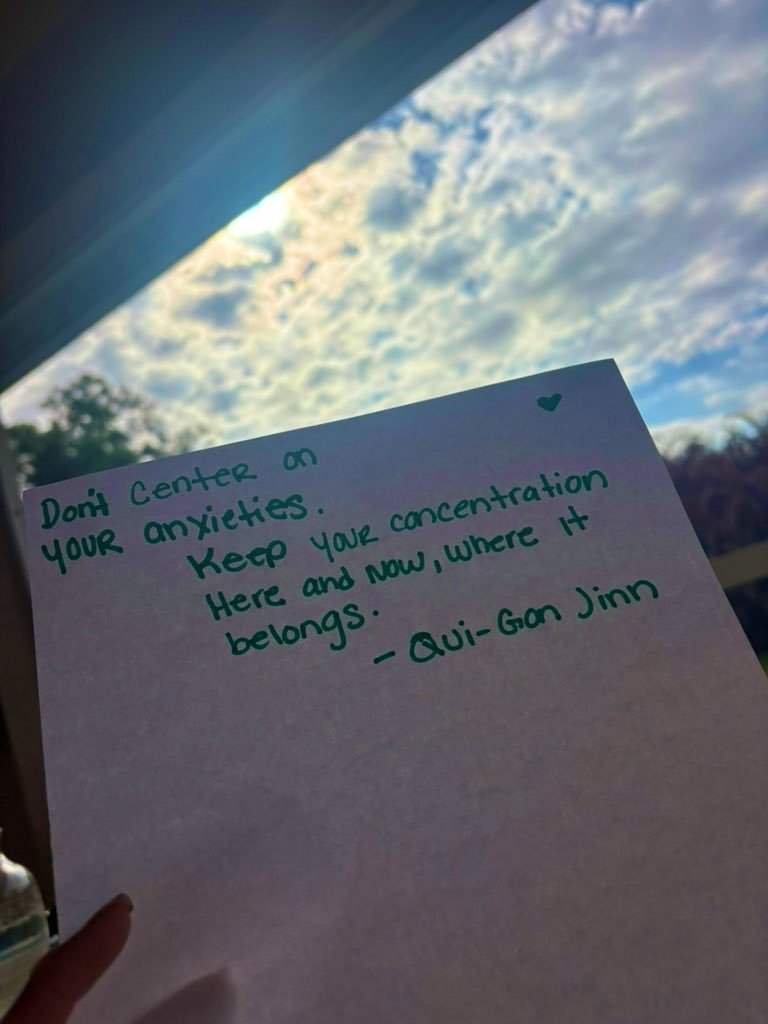 Don't Center on
YOUR anxieties.
Keep YOUR concentration
Here and Now, where It
belongs.
- Qui-Gon Jinn